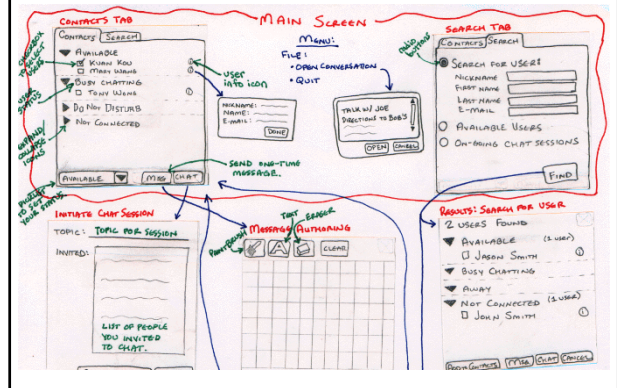 MAIN SCREEN
CONTACTS TAB
CONTACTS SEARCH
AVAILABLE
KUAN KOU
MARY WANG
BUSY CHATTING
TONY WONG
DO NOT DISTURB
NOT CONNECTED
AVAILABLE
MSG
CHAT
CHECKBOX
TO SELECT
USERS
USER
STATUS
EXPAND/
COLLAPSE
ICONS
PULLOUT
TO SET
YOUR STATUS
user
info icon
SEND ONE-TIME
MESSAGE.
NICKNAME:
NAME:
E-MAIL:
DONE
MENU:
FILE:
• OPEN CONVERSATION
• QUIT
TALK W/ JOE
DIRECTIONS TO BOB'S
OPEN
CANCEL
SEARCH TAB
RADIO
BUTTONS
CONTACTS SEARCH
SEARCH FOR USER:
NICKNAME
FIRST NAME
LAST NAME
E-MAIL
AVAILABLE USERS
ON-GOING CHAT SESSIONS
FIND
INITIATE CHAT SESSION
TOPIC: TOPIC FOR SESSION
INVITED:
LIST OF PEOPLE
YOU INVITED
TO CHAT.
MESSAGE AUTHORING
PAINTBRUSH
TEXT
ERASER
A
CLEAR
RESULTS: SEARCH FOR USER
2 USERS FOUND
AVAILABLE (1 USER)
JASON SMITH
BUSY CHATTING
AWAY
NOT CONNECTED (1 USER)
JOHN SMITH
MSG
CHAT
CANCEL